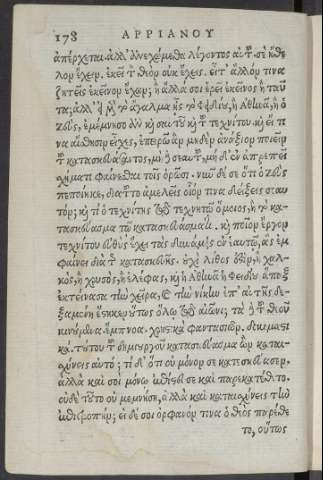 178 ΑΡΡΙΑΝΟΥ
ἀπέρχεται. ἀλλ' ἀνεχόμεθα λέγοντος αὐτοῦ. σὲ ἤθε
λον ἔχειν. ἐκεῖ τὸν θεὸν οὐκ ἔχεις. εἶτ' ἄλλον τινα
ζητεῖς ἐκεῖνον ἔχων; ἢ ἄλλα σοι ἐρεῖ ἐκεῖνος ἢ ταῦ
τα; ἀλλ' εἰ μὲν τὸ ἄγαλμα ἦς τὸ Φειδίου, ἡ Ἀθηνᾶ, ἢ ὁ
Ζεὺς, ἐμέμνησο ἂν καὶ σαυτοῦ καὶ τοῦ τεχνίτου. καὶ εἴ τι
να αἴσθησιν εἶχες, ἐπειρῶ ἂν μηδὲν ἀνάξιον ποιεῖν
τοῦ κατασκευάσαντος, μηδὲ σεαυτοῦ, μηδ' ἐν ἀπρεπεῖ
σχήματι φαίνεσθαι τοῖς ὁρῶσι. νῦν δέ σε ὅτι ὁ Ζεὺς
πεποίηκε, διὰ τοῦτο ἀμελεῖς οἷόν τινα δείξεις σεαυ
τόν; καὶ τί ὁ τεχνίτης τῷ τεχνίτῃ ὅμοιος, ἢ τὸ κατα-
σκεύασμα τῷ κατασκευάσματι. καὶ ποῖον ἔργον
τεχνίτου εὐθὺς ἔχει τὰς δυνάμεις ἐν ἑαυτῷ, ἃς ἐμ
φαίνει διὰ τῆς κατασκευῆς. οὐχὶ λίθος ἐστὶν, ἢ χαλ
κὸς, ἢ χρυσὸς, ἢ ἐλέφας, καὶ ἡ Ἀθηνᾶ ἡ Φειδίου ἅπαξ
ἐκτείνασα τὴν χεῖρα, καὶ τὴν νίκην ἐπ' αὐτῆς δε-
ξαμένη ἕστηκεν οὕτως ὅλῳ τῷ αἰῶνι; τὰ δὲ τοῦ θεοῦ
κινούμενα, ἔμπνοα. χρηστικὰ φαντασιῶν. δοκιμαστι
κά. τούτου τοῦ δημιουργοῦ κατασκεύασμα ὢν καται-
σχύνεις αὐτό; τί δ' ὅτι οὐ μόνον σε κατεσκεύασεν.
ἀλλὰ καὶ σοὶ μόνῳ ἐπίστευσε καὶ παρεκατέθετο.
οὐδὲ τούτου μεμνήσῃ, ἀλλὰ καὶ καταισχύνεις τὴν
ἐπιτροπήν; εἰ δέ σοι ὀρφανόν τινα ὁ θεὸς παρέθε
το, οὕτως